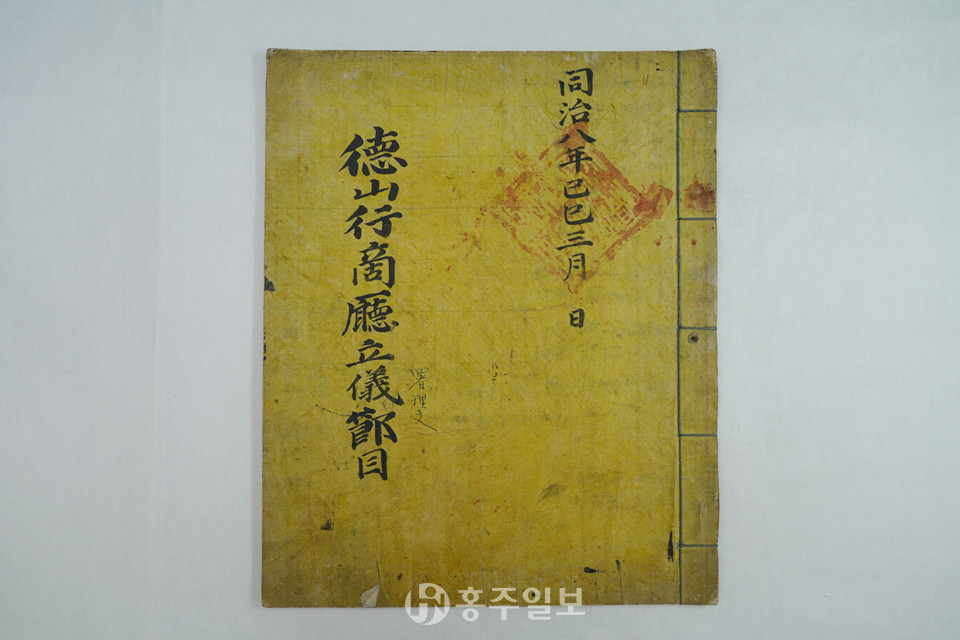 同治八年己巳三月 日
德山行商廳立儀節目
홍주일보